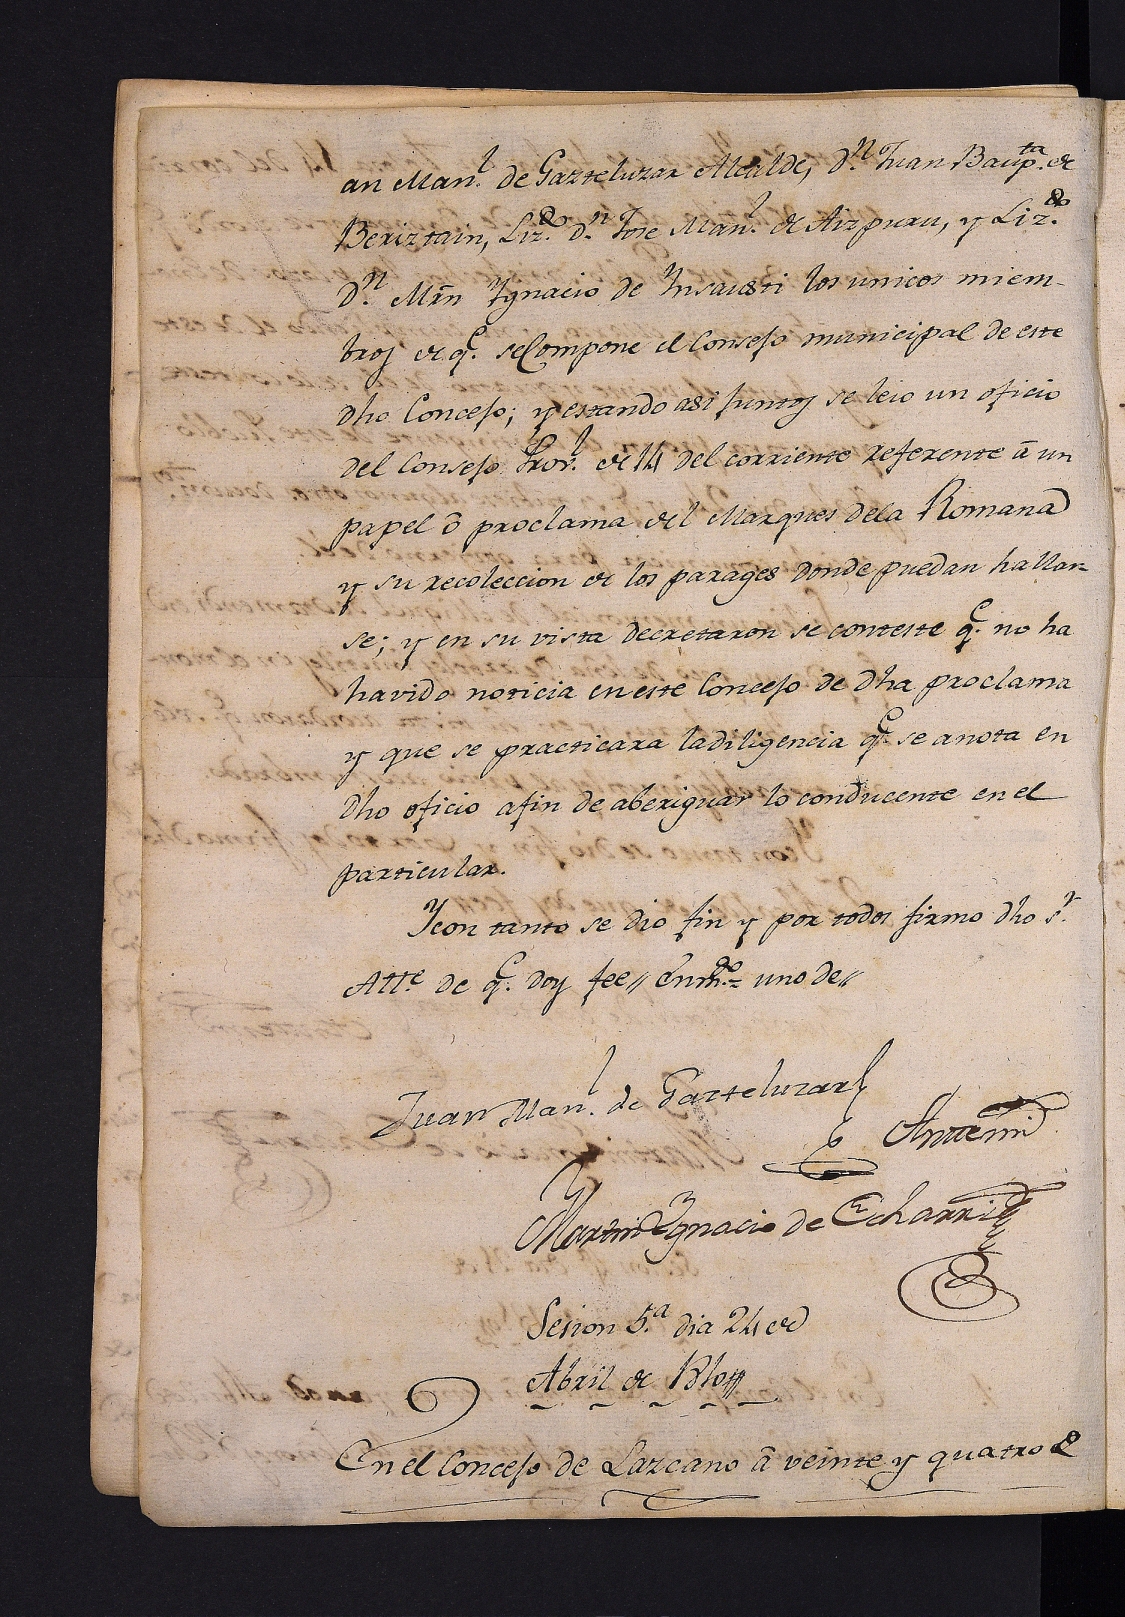 an Man.l de Gazteluzar Alcalde, D.n Juan Baup.ta de
Beriztain, Liz.do D.n Jose Man.l de Aizpuru, y Liz.do
D.n Mrn Ygnacio de Insausti los unicos miem-
bros de q.e se Compone el Consejo municipal de este
dho Concejo; y estando asi juntos se leio un oficio
del Consejo Prov.l de 14 del corriente referente â un
papel ô proclama del Marques dela Romana
y su recoleccion de los parages donde puedan hallar-
se; y en su vista decretaron se conteste q.e no ha
havido noticia en este Concejo de dha proclama
y que se practicara la diligencia q.e se anota en
dho oficio afin de aberiguar lo conducente en el
particular.
Y con tanto se dio fin y por todos firmo dho s.r
Alt.e de q.e doy fee // Enm.do = uno de //
Juan Man.l de Gazteluzar
Antemi
Martin Ygnacio de Echarri
Sesion 5.a dia 24 de
Abril de 1810
En el Concejo de Lazcano â veinte y quatro de